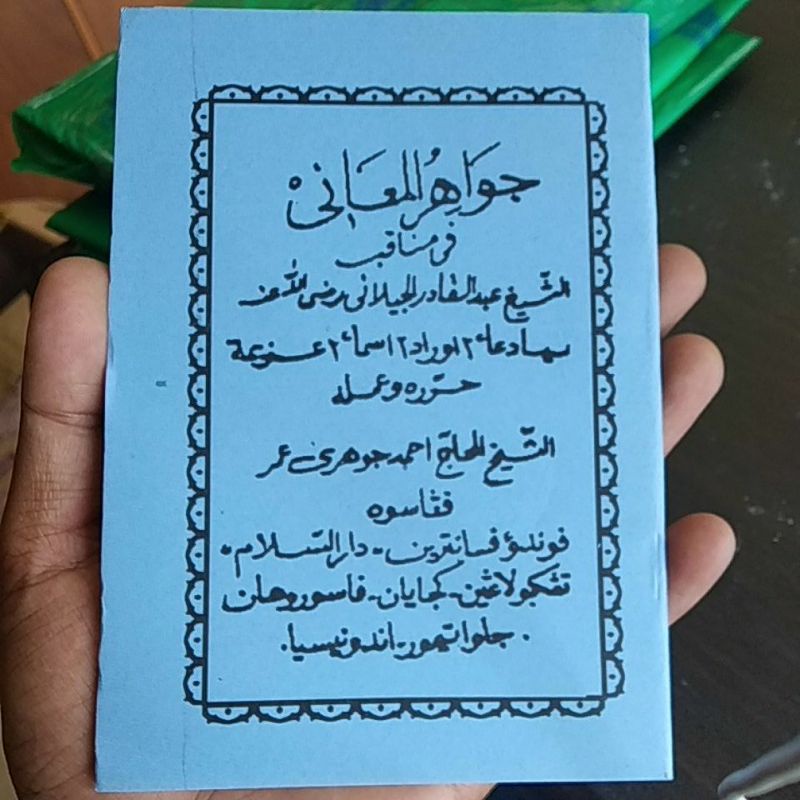 جَوَاهِرُ المَعَانِى
فى مناقب
الشّيخ عبد القادر الجيلانى رضى الله عنه
بها دعاء٢ اوراد٢ اسماء٢ عزيمة
حرّره وعمله
الشّيخ الحاجّ احمد جوهرى عمر
ڤڠاسوه
ڤوندؤ ڤسانترين - دار السّلام -
تڠكولاڠين - كجايان - ڤاسوروهان
. جاوا تيمور - اندونيسيا .